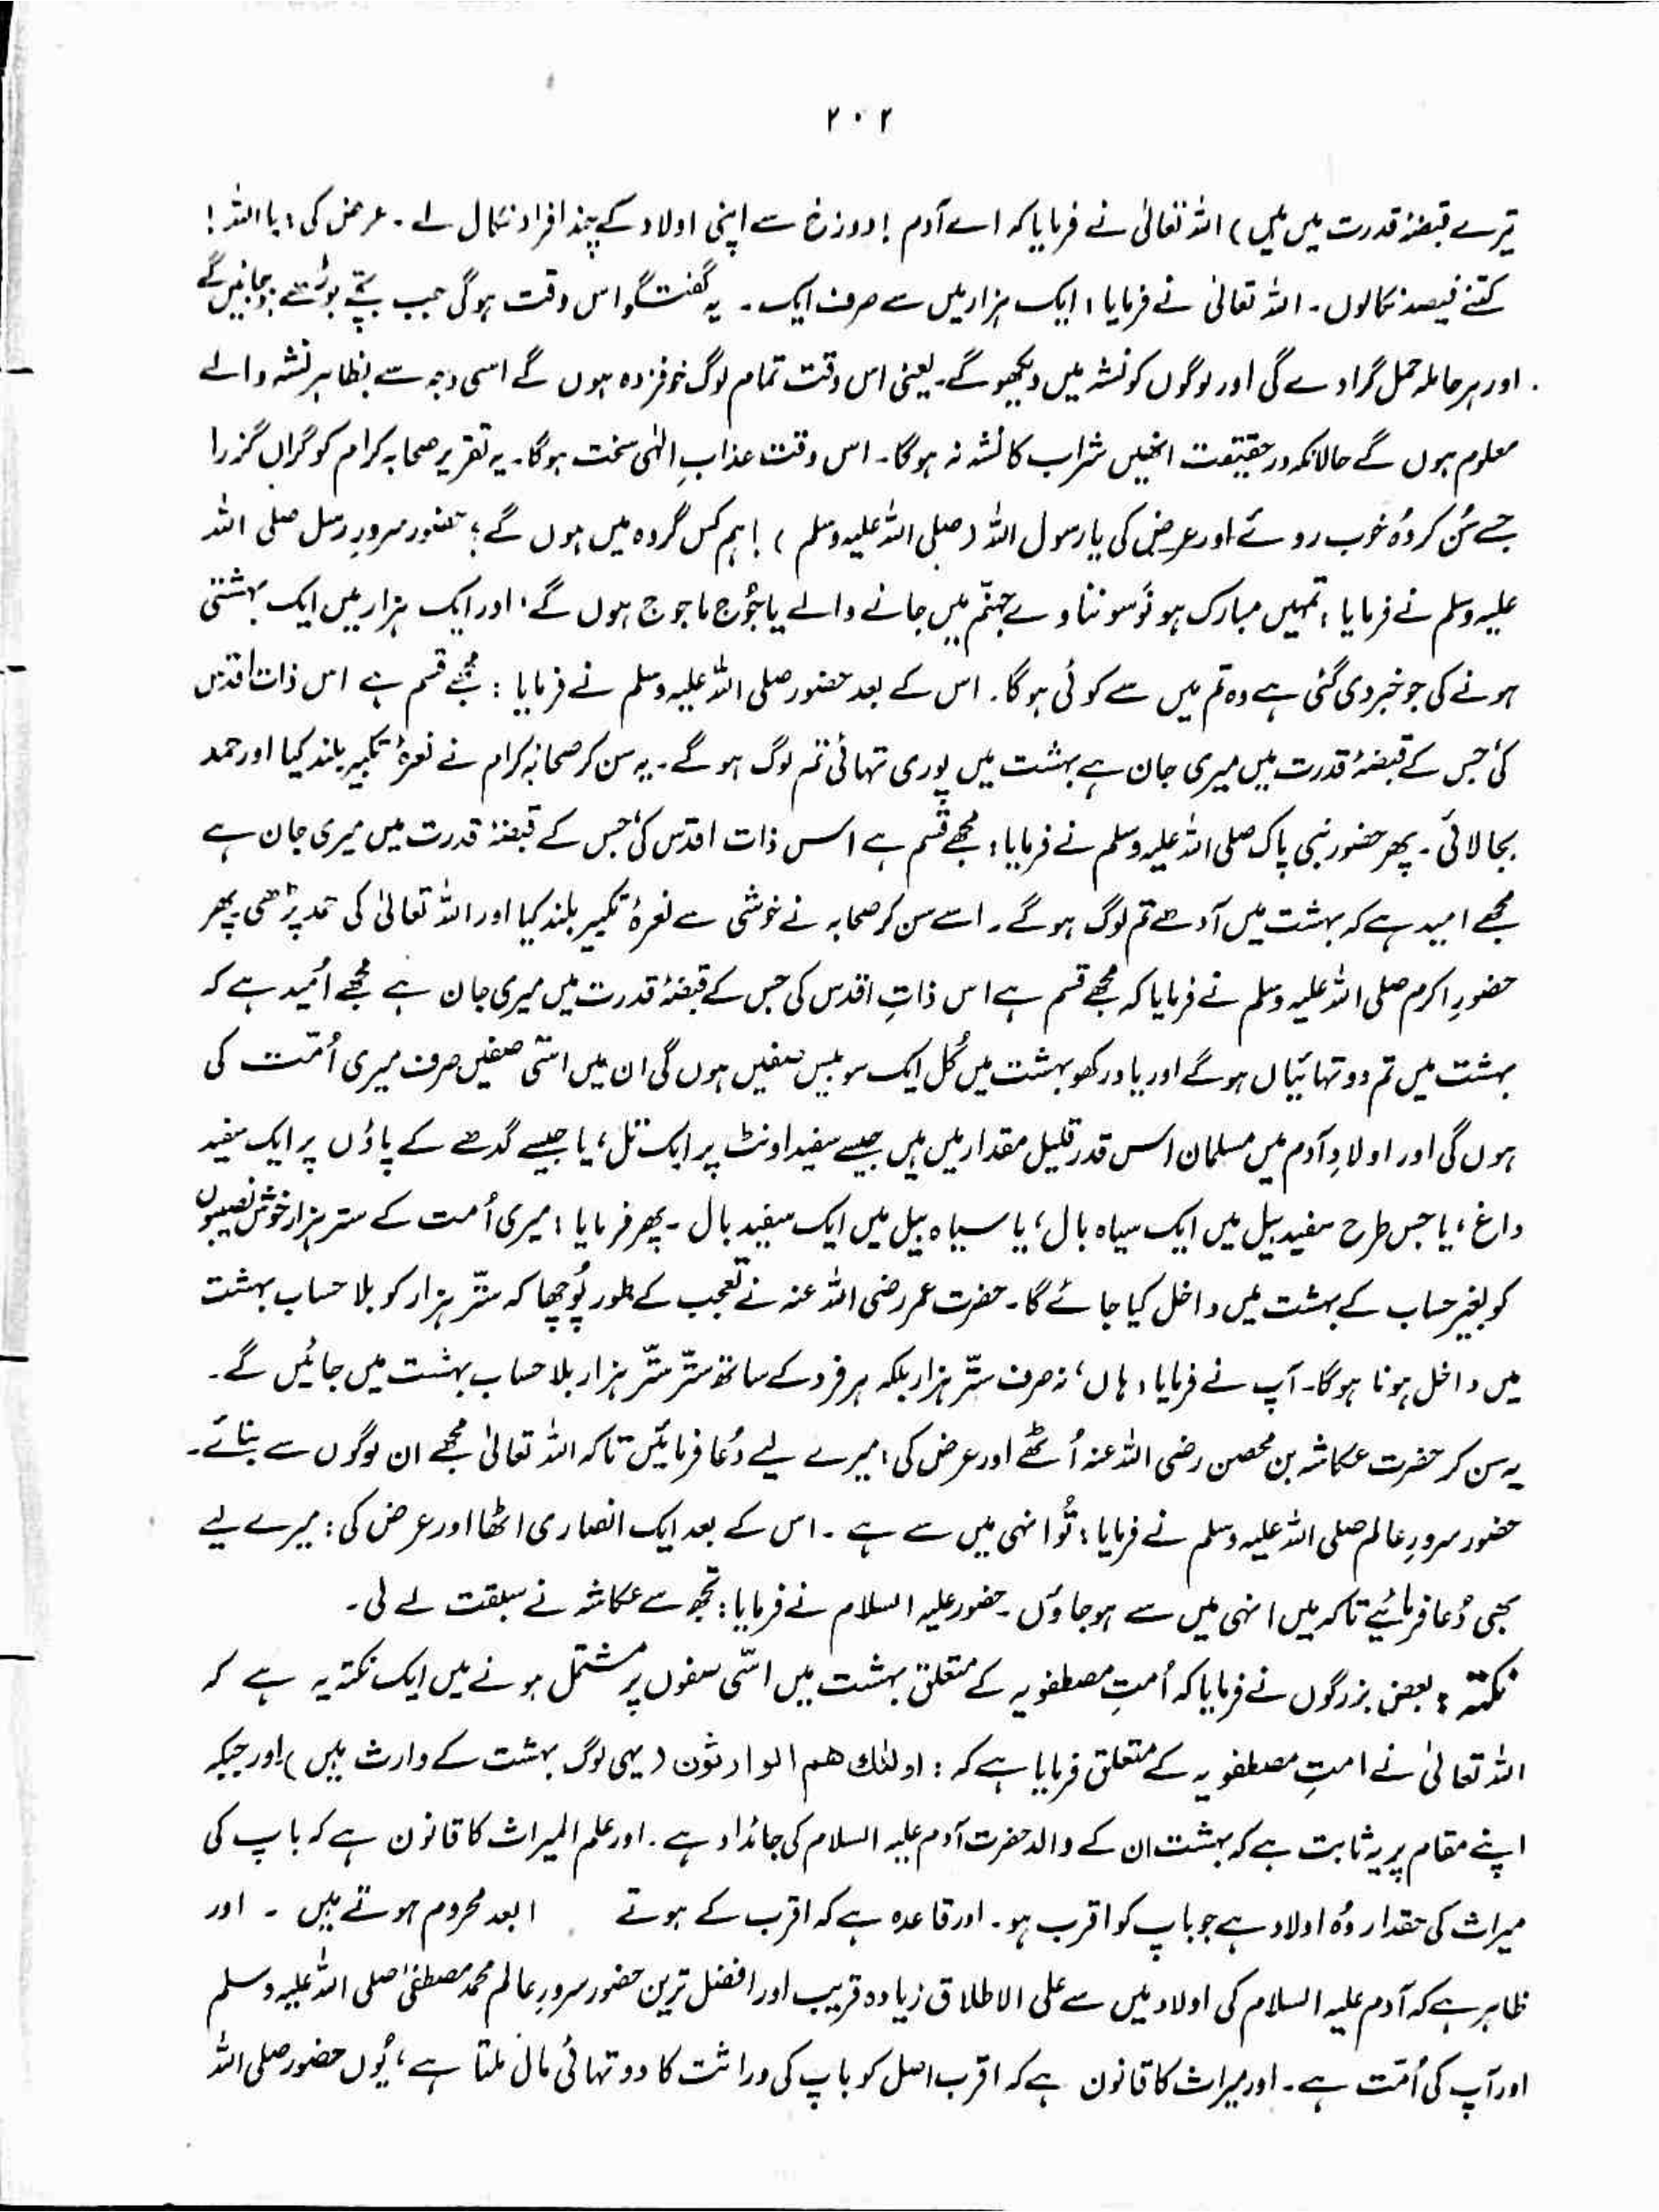 ۲۰۲
تیرے قبضۂ قدرت میں ہیں) اللہ تعالیٰ نے فرمایا کہ اے آدم! دوزخ سے اپنی اولاد کے چند افراد نکال لے۔ عرض کی: یا اللہ!
کتنے فیصد نکالوں۔ اللہ تعالیٰ نے فرمایا: ایک ہزار میں سے صرف ایک۔ یہ گفتگو اس وقت ہوگی جب بچے بوڑھے ہوجائیں گے
اور ہر حاملہ حمل گرا دے گی اور لوگوں کو نشہ میں دیکھو گے۔ یعنی اس وقت تمام لوگ خوفزدہ ہوں گے اسی وجہ سے بظاہر نشہ والے
معلوم ہوں گے حالانکہ درحقیقت انھیں شراب کا نشہ نہ ہوگا۔ اس وقت عذابِ الٰہی سخت ہوگا۔ یہ تقریر صحابہ کرام کو گراں گزرا
جسے سُن کر وُہ خوب روئے اور عرض کی یا رسول اللہ (صلی اللہ علیہ وسلم)! ہم کس گروہ میں ہوں گے؟ حضور سرورِ رسل صلی اللہ
علیہ وسلم نے فرمایا: تمہیں مبارک ہو نَوسو ننانوے جہنّم میں جانے والے یاجُوج ماجوج ہوں گے، اور ایک ہزار میں ایک بہشتی
ہونے کی جو خبر دی گئی ہے وہ تم میں سے کوئی ہوگا۔ اس کے بعد حضور صلی اللہ علیہ وسلم نے فرمایا: مجھے قسم ہے اس ذات اقدس
کی جس کے قبضۂ قدرت میں میری جان ہے بہشت میں پوری تہائی تم لوگ ہوگے۔ یہ سن کر صحابہ کرام نے نعرۂ تکبیر بلند کیا اور حمد
بجا لائی۔ پھر حضور نبی پاک صلی اللہ علیہ وسلم نے فرمایا: مجھے قسم ہے اس ذات اقدس کی جس کے قبضۂ قدرت میں میری جان ہے
مجھے امید ہے کہ بہشت میں آدھے تم لوگ ہوگے۔ اسے سن کر صحابہ نے خوشی سے نعرۂ تکبیر بلند کیا اور اللہ تعالیٰ کی حمد پڑھی۔ پھر
حضورِ اکرم صلی اللہ علیہ وسلم نے فرمایا کہ مجھے قسم ہے اس ذاتِ اقدس کی جس کے قبضۂ قدرت میں میری جان ہے مجھے اُمید ہے کہ
بہشت میں تم دو تہائیاں ہوگے اور یاد رکھو بہشت میں کُل ایک سو بیس صفیں ہوں گی ان میں اسّی صفیں صرف میری اُمّت کی
ہوں گی اور اولادِ آدم میں مسلمان اس قدر قلیل مقدار میں ہیں جیسے سفید اونٹ پر ایک تل، یا جیسے گدھے کے پاؤں پر ایک سفید
داغ، یا جس طرح سفید بیل میں ایک سیاہ بال، یا سیاہ بیل میں ایک سفید بال۔ پھر فرمایا: میری اُمت کے ستر ہزار خوش نصیبوں
کو بغیر حساب کے بہشت میں داخل کیا جائے گا۔ حضرت عمر رضی اللہ عنہ نے تعجب کے طور پُوچھا کہ ستّر ہزار کو بلا حساب بہشت
میں داخل ہونا ہوگا۔ آپ نے فرمایا: ہاں، نہ صرف ستّر ہزار بلکہ ہر فرد کے ساتھ ستّر ستّر ہزار بلا حساب بہشت میں جائیں گے۔
یہ سن کر حضرت عکاشہ بن محصن رضی اللہ عنہ اُٹھے اور عرض کی: میرے لیے دُعا فرمائیں تاکہ اللہ تعالیٰ مجھے ان لوگوں سے بنائے۔
حضور سرورِ عالم صلی اللہ علیہ وسلم نے فرمایا: تُو انہی میں سے ہے۔ اس کے بعد ایک انصاری اٹھا اور عرض کی: میرے لیے
بھی دُعا فرمائیے تاکہ میں انہی میں سے ہوجاؤں۔ حضور علیہ السلام نے فرمایا: تجھ سے عکاشہ نے سبقت لے لی۔
نکتہ: بعض بزرگوں نے فرمایا کہ اُمتِ مصطفویہ کے متعلق بہشت میں اسّی صفوں پر مشتمل ہونے میں ایک نکتہ یہ ہے کہ
اللہ تعالیٰ نے امتِ مصطفویہ کے متعلق فرمایا ہے کہ: اولئك هم الوارثون (یہی لوگ بہشت کے وارث ہیں) اور جبکہ
اپنے مقام پر یہ ثابت ہے کہ بہشت ان کے والد حضرت آدم علیہ السلام کی جائداد ہے۔ اور علم المیراث کا قانون ہے کہ باپ کی
میراث کی حقدار وُہ اولاد ہے جو باپ کو اقرب ہو۔ اور قاعدہ ہے کہ اقرب کے ہوتے ابعد محروم ہوتے ہیں۔ اور
ظاہر ہے کہ آدم علیہ السلام کی اولاد میں سے علی الاطلاق زیادہ قریب اور افضل ترین حضور سرورِ عالم محمد مصطفیٰ صلی اللہ علیہ وسلم
اور آپ کی اُمّت ہے۔ اور میراث کا قانون ہے کہ اقرب اصل کو باپ کی وراثت کا دو تہائی مال ملتا ہے، یُوں حضور صلی اللہ